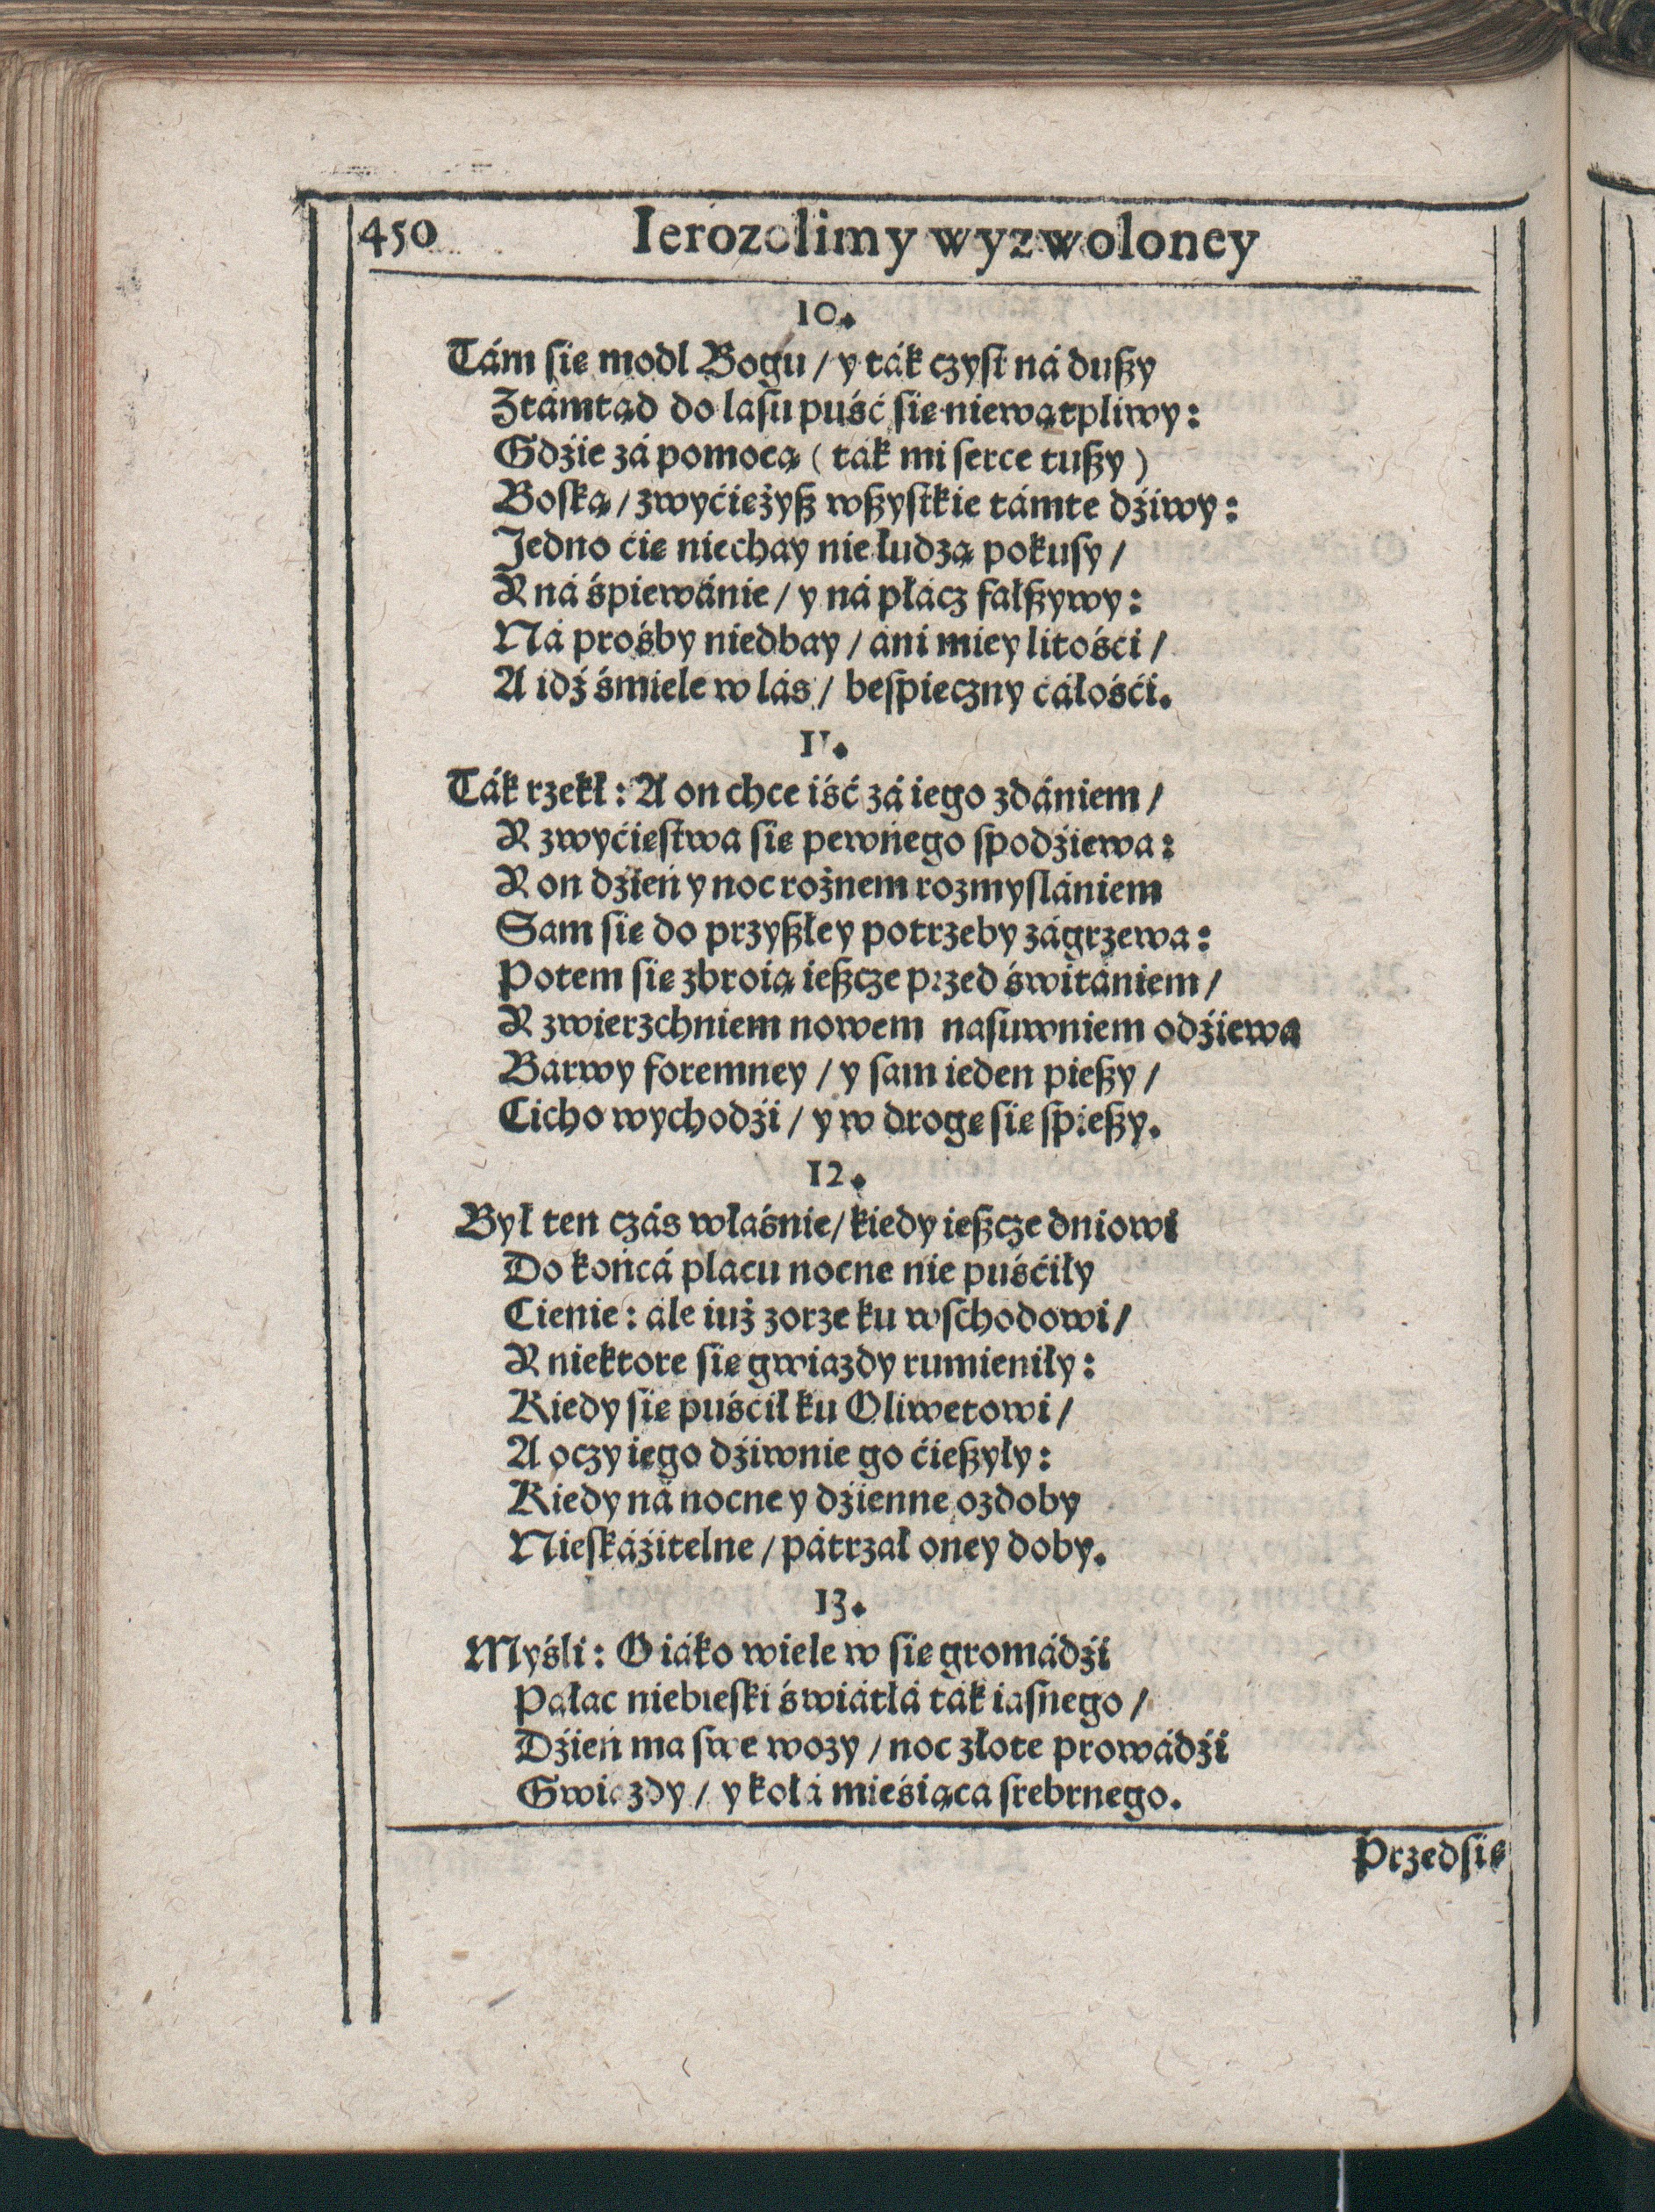 450 Ierozolimy wyzwoloney
10.
Tám ſię modl Bogu / y ták czyſt ná dußy
Ztámtąd do laſu puść ſię niewątpliwy:
Gdźie zá pomocą ( ták mi ſerce tußy )
Boſką / zwyćiężyß wßyſtkie támte dźiwy:
Jedno ćię niechay nie łudzą pokuſy /
Y ná śpiewánie / y ná płácz fałßywy:
Ná prośby niedbay / áni miey litośći /
A idź śmiele w lás / beſpieczny cáłośći.
11.
Ták rzekł: A on chce iść zá iego zdániem /
Y zwyćięſtwa ſię pewnego ſpodźiewa:
Y on dźień y noc rożnem rozmyſlániem
Sam ſię do przyßłey potrzeby zágrzewa:
Potem ſię zbroią ießcze przed świtániem /
Y zwierzchniem nowem naſuwniem odźiewa
Bárwy foremney / y ſam ieden pießy /
Cicho wychodźi / y w drogę ſię ſpießy.
12.
Był ten czás właśnie / kiedy ießcze dniowi
Do końcá placu nocne nie puśćiły
Cienie: ále iuż zorze ku wſchodowi /
Y niektore ſię gwiazdy rumieniły:
Kiedy ſię puśćił ku Oliwetowi /
A oczy iego dźiwnie go ćießyły:
Kiedy ná nocne y dźienne ozdoby
Nieſkáźitelne / pátrzał oney doby.
13.
Myśli: O iáko wiele w ſię gromádźi
Pałac niebieſki świátłá ták iaſnego /
Dźień ma ſwe wozy / noc złote prowádźi
Gwiazdy / y kołá mieśiąca ſrebrnego.
Przedſię